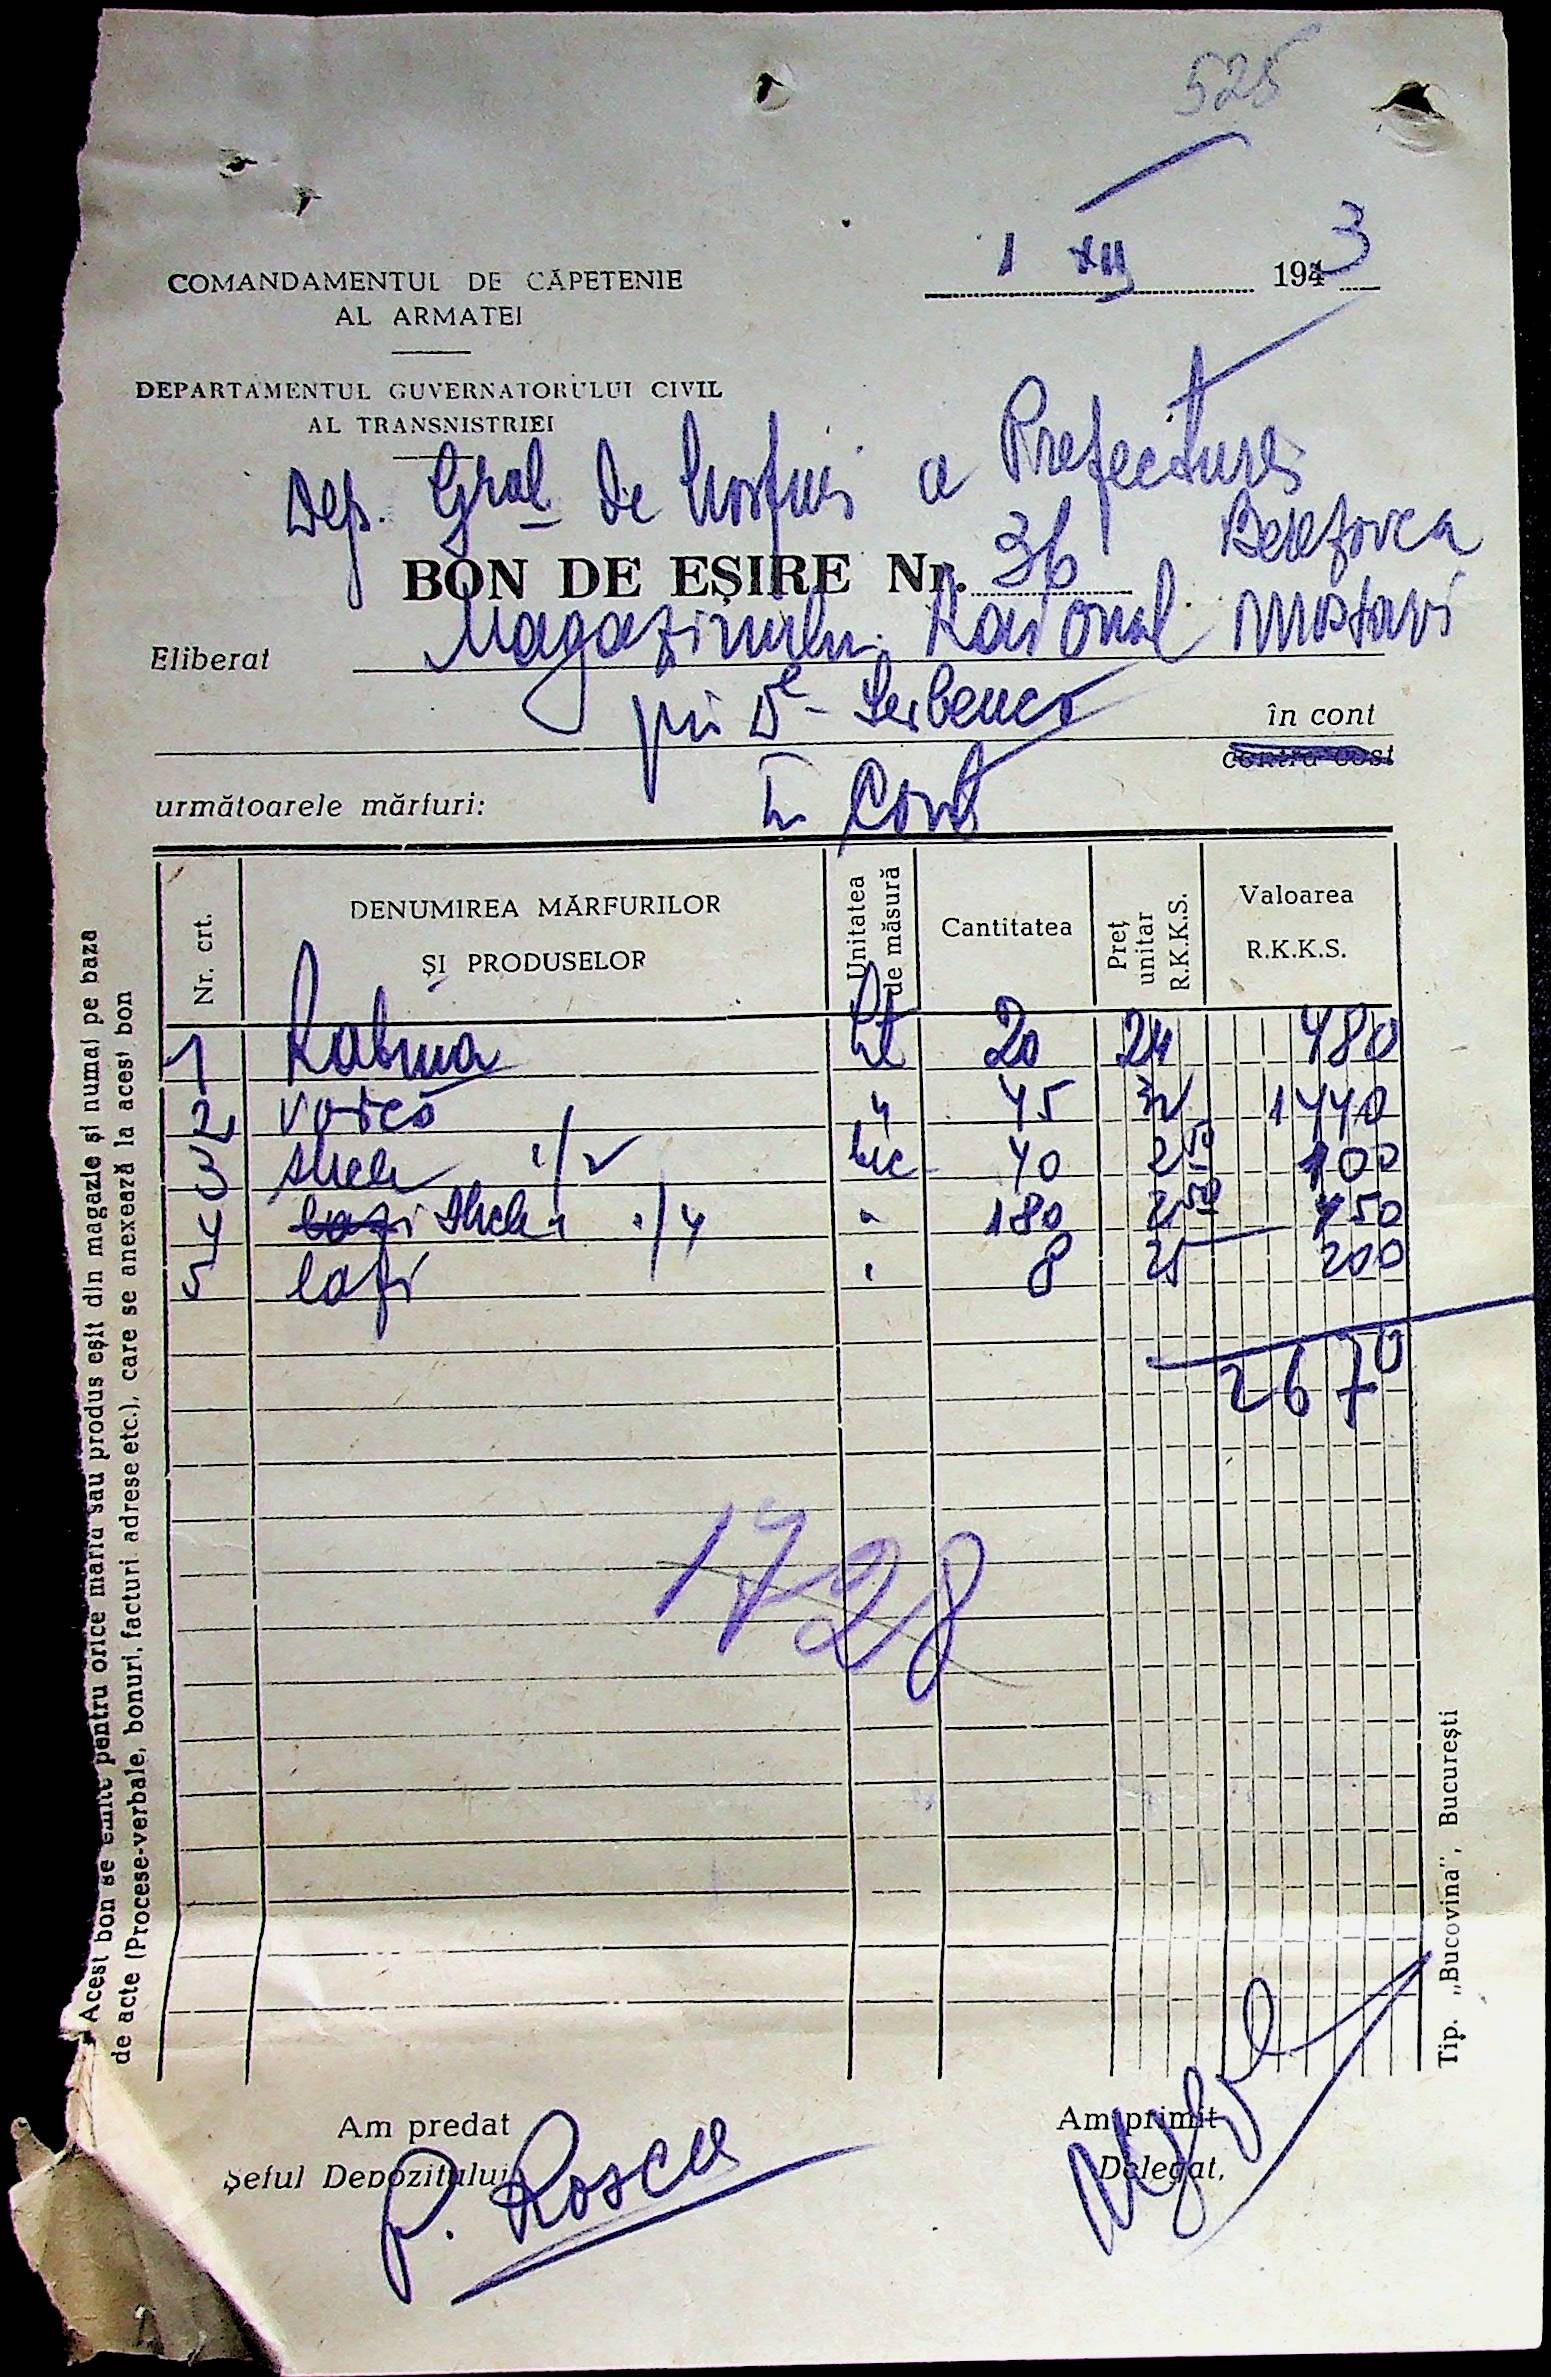 525
1 XII 1943
COMANDAMENTUL DE CĂPETENIE
AL ARMATEI
DEPARTAMENTUL GUVERNATORULUI CIVIL
AL TRANSNISTRIEI
Dep. Gral de Mărfuri a Prefecturei
Berezovca
BON DE EȘIRE Nr. 36
Eliberat Magazinului Raional Mostovi
prin Dl Serbenco în cont
contra cost
următoarele mărfuri: În Cont
Nr. crt. DENUMIREA MĂRFURILOR ȘI PRODUSELOR Unitatea de măsură Cantitatea Preț unitar R.K.K.S. Valoarea R.K.K.S.
1 Lt 20 24 480
2 " 45 32 1440
3 sticle 1/2 buc 40 2 50 100
4 sticle 1/4 " 180 2 50 450
5 lazi " 8 25 200
2670
1728
Am predat
Șeful Depozitului,
P. Roscu
Am primit
Delegat,
Acest bon se emite pentru orice marfă sau produs eșit din magazie și numai pe baza
de acte (Procese-verbale, bonuri, facturi adrese etc.), care se anexează la acest bon
Tip. „Bucovina", București